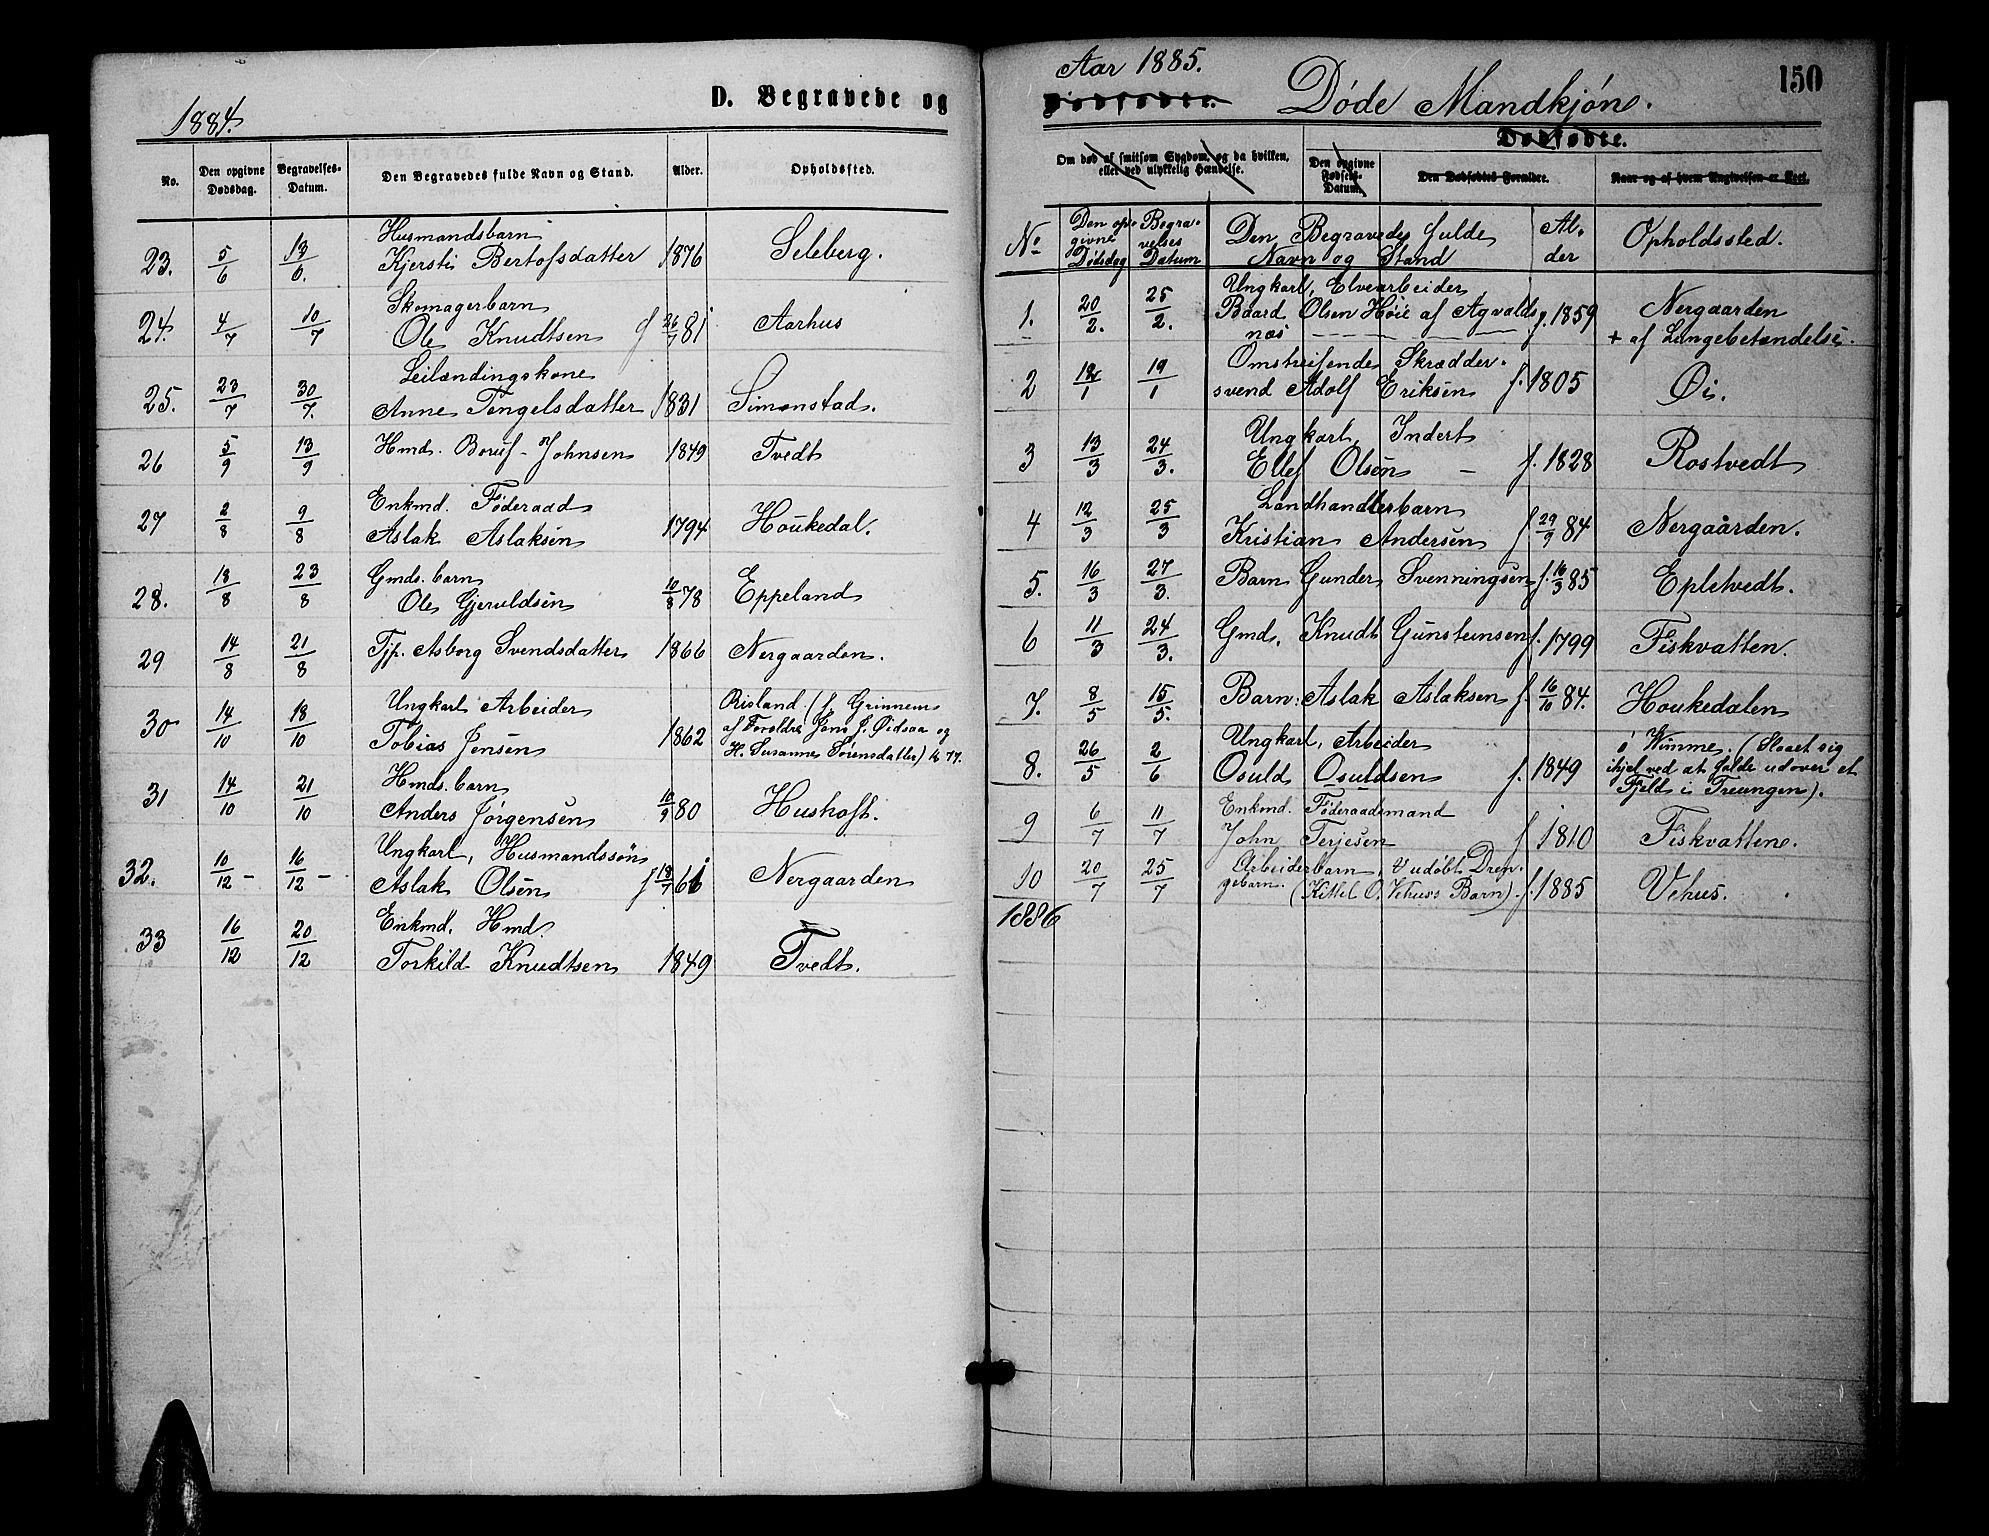 1884.
D. Begravede og
No. Den opgivne Dødsdag. Begravelses-Datum. Den Begravedes fulde Navn og Stand. Alder. Opholdssted.
Husmandsbarn
23. 5/6 13/6. Kjersti Bertofsdatter 1876 Seleberg.
Skomagerbarn
24. 4/7 10/7 Ole Knudtsen f 26/7 81 Aarhus
Leilændingskone
25. 23/7 30/7. Anne Tengelsdatter 1831 Simonstad.
26 5/9 13/9 Hmd. Johnsen 1849 Tvedt
Enkmd. Føderaad
27 2/8 9/8 Aslak Aslaksen 1794 Houkedal.
Gmds. barn
28. 18/8 23/8 Ole Gjeruldsen 10/8 78 Eppeland
29 14/8 21/8 Tjp. Asborg Svendsdatter 1866 Nergaarden.
Ungkarl Arbeider
30 14/10 18/10 Tobias Jensen 1862 Risland (f. Grinnem
af Forældre Jens J. Øidsaa og
H. Susanne Sørensdatter) k 77.
Hmds. barn
31 14/10 21/10 Anders Jørgensen 10/9 80 Hushoft.
Ungkarl, Husmandssøn
32. 10/12 - 16/12 - Aslak Olsen f 18/7 61 Nergaarden
Enkmd. Hmd.
33 16/12 20/12 Torkild Knudtsen 1849 Tvedt.
Aar 1885.
Dødfødte. Døde Mandkjøn. 150
Dødfødte.
Om død af smitsom Sygdom, og da hvilken, eller ved ulykkelig Hændelse. Den opgivne Fødsels-Datum. Den Dødfødtes Forældre. Naar og af hvem Angivelsen er skeet.
No Den opgivne Dødsdag Begravelses Datum Den Begravedes fulde Navn og Stand Alder Opholdssted.
Ungkarl, Elvearbeider
1. 20/2. 25/2. Baard Olsen Høie af Agvalds f. 1859 Nergaarden
næs + af Lungebetændelse.
Omstreifende Skrædder-
2 12/1 19/1 svend Adolf Eriksen f. 1805 Øi.
Ungkarl, Inderst
3 13/3 24/3. Ellef Olsen - f. 1828 Rostvedt
Landhandlerbarn
4 12/3 25/3 Kristian Andersen f 29/9 84 Nergaarden.
5. 16/3 27/3. Barn Gunder Svenningsen f. 16/3 85 Epletvedt.
6 11/3 24/3. Gmd. Knudt Gunsteinsen f. 1799 Fiskvatten.
7. 8/5 15/5. Barn: Aslak Aslaksen f. 16/10 84. Houkedalen
Ungkarl, Arbeider
8. 26/5 2/6 Osuld Osuldsen f. 1849 ó Wimme. (Slaaet sig
ihjel ved at falde udover et
Fjeld i Treungen).
Enkmd. Føderaadsmand
9 6/7 11/7 John Terjesen f 1810 Fiskvattene.
Arbeiderbarn, udøbt Dren-
10 20/7 25/7 gebarn. (Kittel O. Vehus's Barn) f. 1885 Vehus.
1886